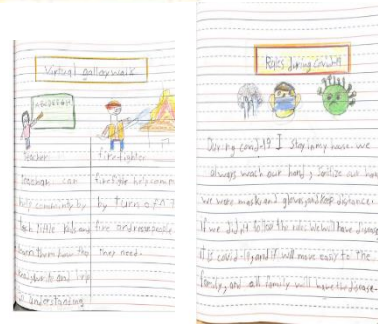 Virtual gallery walk
ABCDEFGH
teacher
teacher can
help community by
teach little kids and
them how to
and help
understanding
firefighter
firefighter help comm
by turn off
fire and rescue people
they need.
Rules during covid-19
During covid-19 I stay in my house. we
always wash our hand, sanitize our han
we were mask and gloves, and keep distance.
If we did not follow the rules we will have disease
it is covid-19, and it will move easy to the
family, and all family will have the disease.